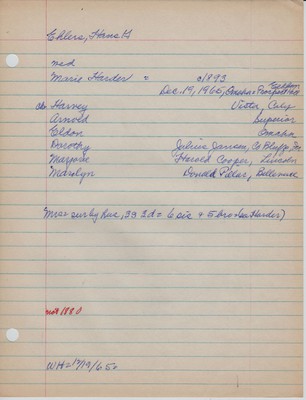 Ehlers, Hans H
wed
Marie Harder = c/1893
Dec. 19, 1965, Omaha Prospect Hill
ch Harvey Victor, Calif
Arnold Superior
Eldon Omaha
Dorothy Julius Jansen, Co Bluffs, Ia
Marjorie Harold Cooper, Lincoln
Marolyn Donald Pillar, Bellevue
Mrs= surby Hus, 3s 3d= 6 sis + 5 bro (ea Harder)
not 1880
WH=12/19/65=